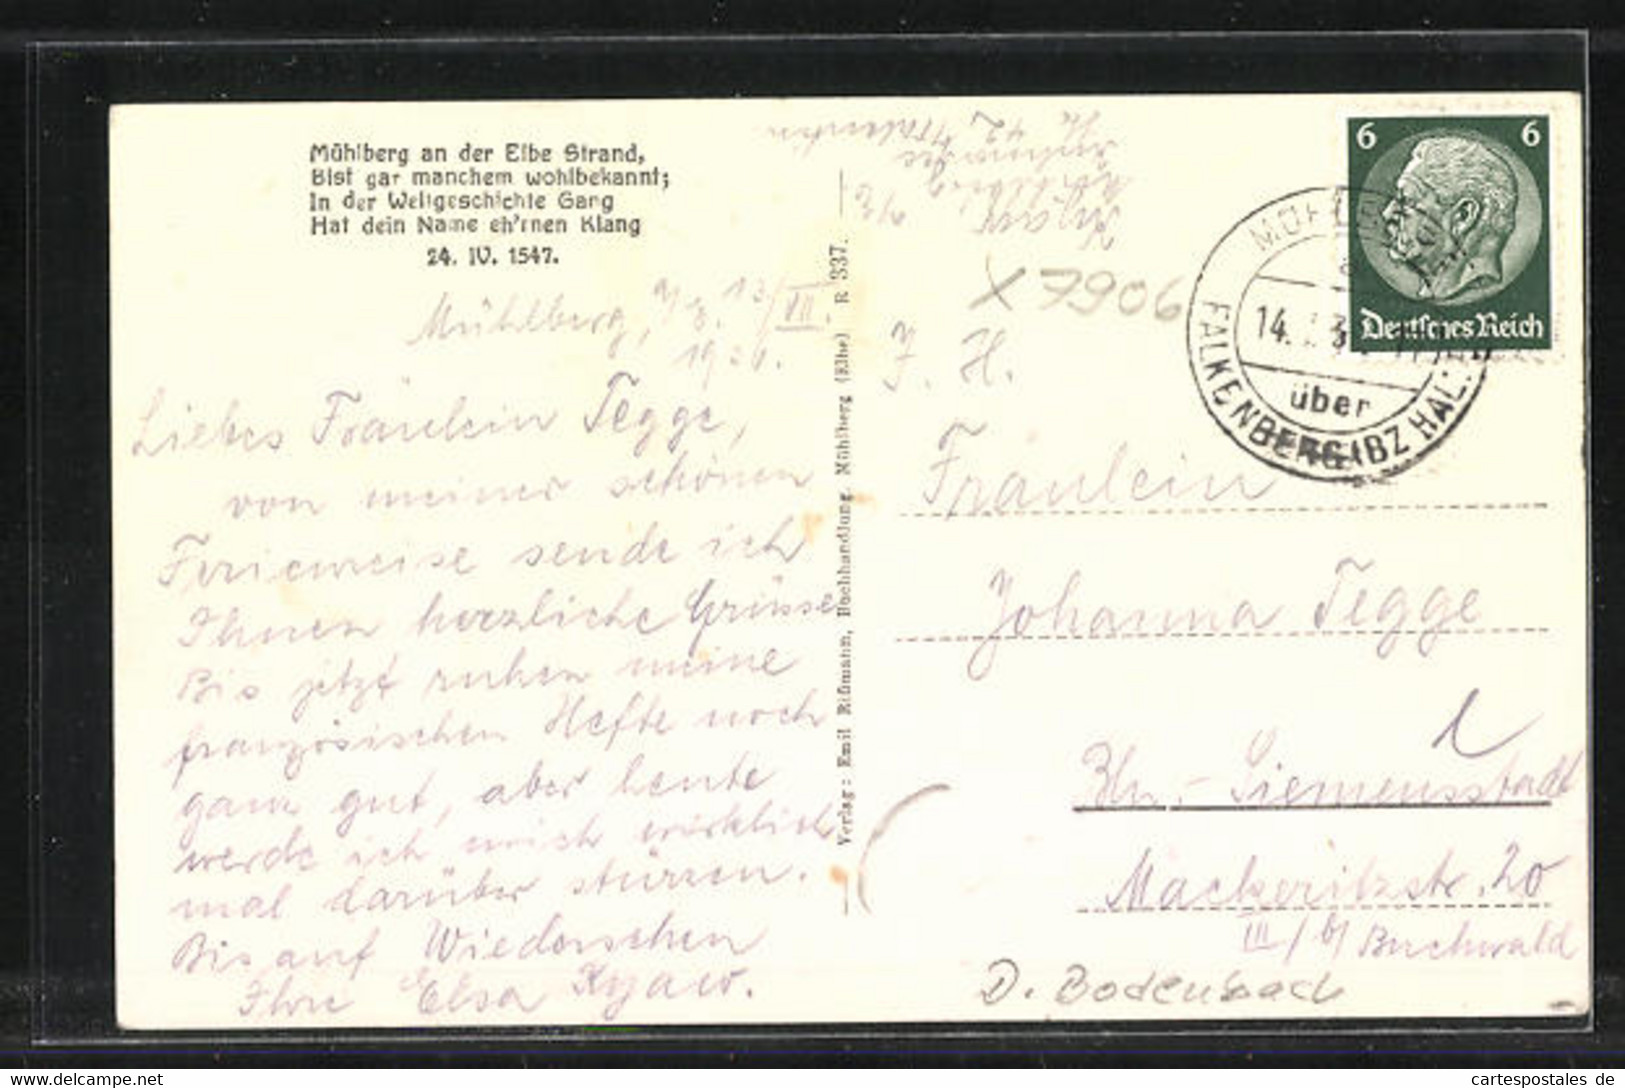 Mühlberg an der Elbe Strand,
Bist gar manchem wohlbekannt;
In der Weltgeschichte Gang
Hat dein Name eh'rnen Klang
24. IV. 1547.
Mühlberg, 13/VII.
Liebes Fräulein Tegge,
von meiner schönen
Ferienreise sende ich
Ihnen herzliche Grüsse
Bis jetzt ruhen meine
französischen Hefte noch
ganz gut, aber heute
werde ich mich wirklich
mal darüber stürzen.
Bis auf Wiedersehen
Ihre Elsa Kyaw.
Verlag: Emil Rißmann, Buchhandlung, Mühlberg (Elbe) R 337.
Kyaw,
42
X 7906
6 6
Deutsches Reich
14.
über
FALKENBERG (BZ HAL
Fräulein
Johanna Tegge
Bln.-Siemensstadt
Mackeritzstr. 20
III/ b/ Buchwald
D. Bodenbach
© cartespostales de